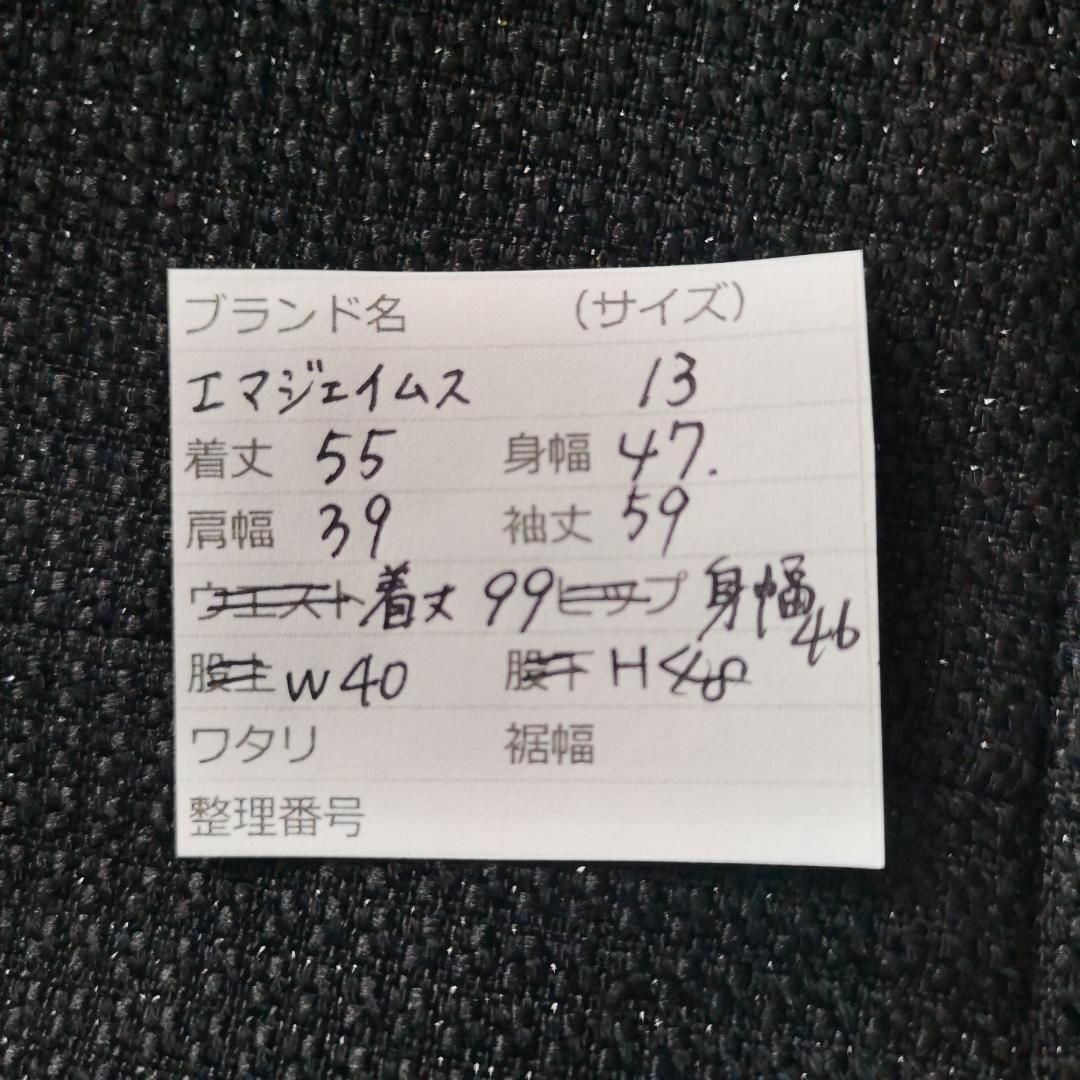 ブランド名 (サイズ)
エマジェイムス 13
着丈 55 身幅 47.
肩幅 39 袖丈 59
ウエスト 着丈 99 ヒップ 身幅 46
股上 W40 股下 H48
ワタリ 裾幅
整理番号